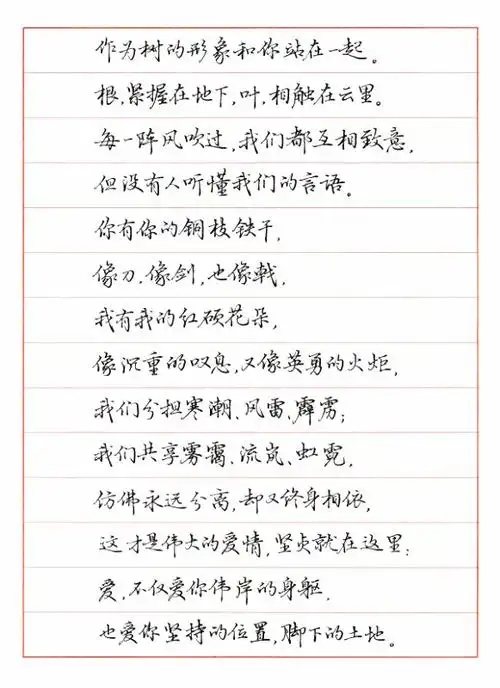 作为树的形象和你站在一起。
根，紧握在地下，叶，相触在云里。
每一阵风吹过，我们都互相致意，
但没有人听懂我们的言语。
你有你的铜枝铁干，
像刀，像剑，也像戟，
我有我的红硕花朵，
像沉重的叹息，又像英勇的火炬，
我们分担寒潮、风雷、霹雳；
我们共享雾霭、流岚、虹霓，
仿佛永远分离，却又终身相依，
这才是伟大的爱情，坚贞就在这里：
爱，不仅爱你伟岸的身躯，
也爱你坚持的位置，脚下的土地。